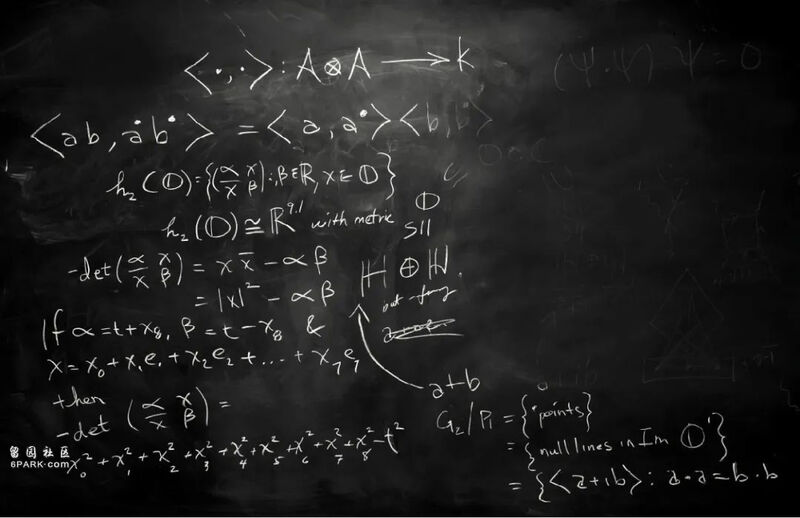 <·,·>: A⊗A → k
<ab, a˙b˙> = <a, a˙><b, b˙>
h₂(𝕆) = {(α x x̄ β): β∈ℝ, x∈𝕆}
h₂(𝕆) ≅ ℝ⁹·¹ with metric
-det(α x x̄ β) = x x̄ - αβ
= |x|² - αβ
If α = t + x₈, β = t - x₈ &
x = x₀ + x₁e₁ + x₂e₂ + ... + x₇e₇
then
-det (α x x̄ β) =
x₀² + x₁² + x₂² + x₃² + x₄² + x₅² + x₆² + x₇² + x₈² - t²
𝕆
SII
ℍ ⊕ ℍ.
a+b
G₂/P₁ = {points}
= {null lines in Im 𝕆'}
= {<a+ib>: a·a = b·b
(Ψ·Ψ) Ψ = 0
留园社区
6PARK.com